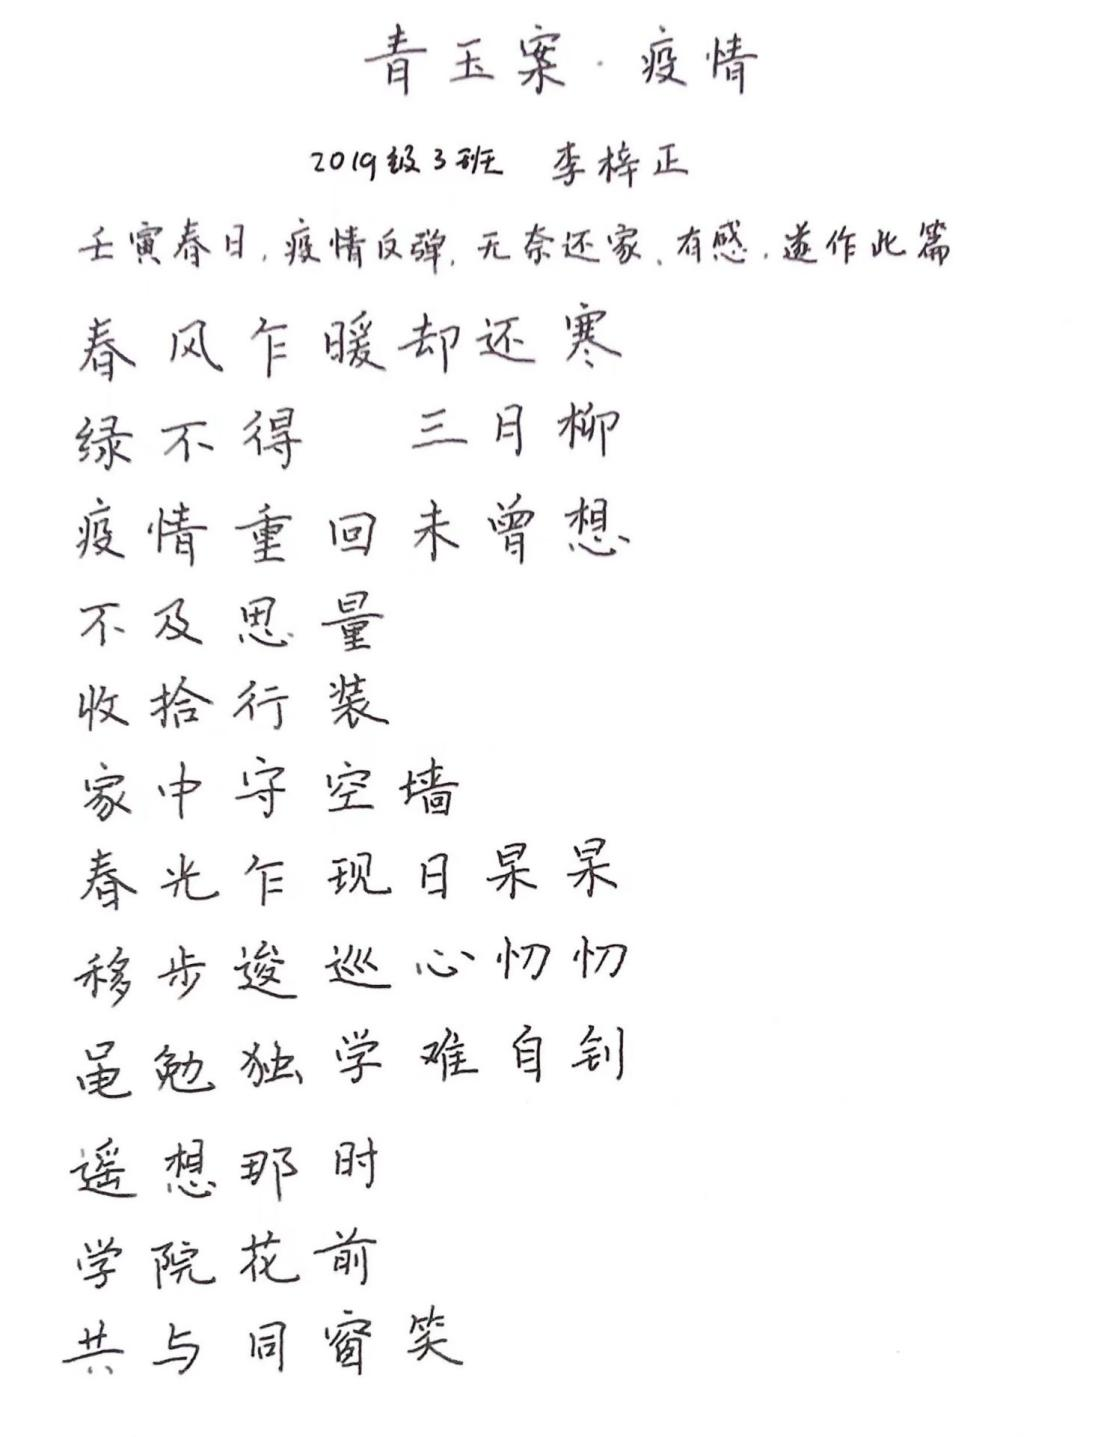 青玉案·疫情
2019级3班 李梓正
壬寅春日,疫情反弹,无奈还家、有感,遂作此篇
春风乍暖却还寒
绿不得 三月柳
疫情重回未曾想
不及思量
收拾行装
家中守空墙
春光乍现日杲杲
移步逡巡心忉忉
黾勉独学难自钊
遥想那时
学院花前
共与同窗笑